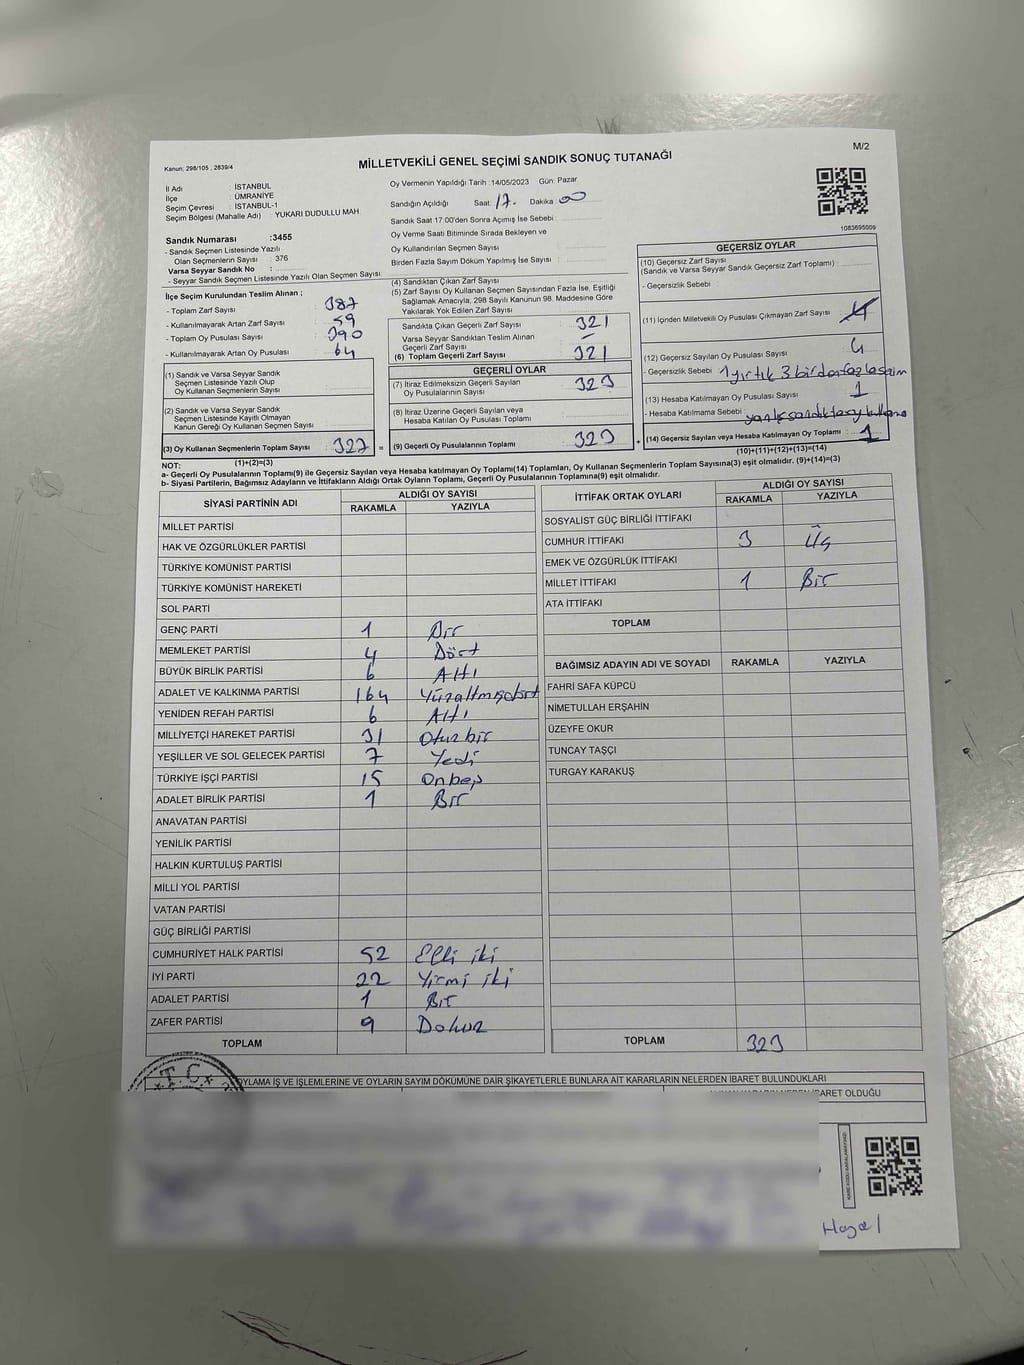 Kanun: 298/105 , 2839/4
MİLLETVEKİLİ GENEL SEÇİMİ SANDIK SONUÇ TUTANAĞI
M/2
İl Adı : İSTANBUL
İlçe : ÜMRANİYE
Seçim Çevresi : İSTANBUL-1
Seçim Bölgesi (Mahalle Adı) : YUKARI DUDULLU MAH
Sandık Numarası :3455
- Sandık Seçmen Listesinde Yazılı
Olan Seçmenlerin Sayısı : 376
Varsa Seyyar Sandık No :
- Seyyar Sandık Seçmen Listesinde Yazılı Olan Seçmen Sayısı:
Oy Vermenin Yapıldığı Tarih :14/05/2023 Gün: Pazar
Sandığın Açıldığı Saat: 17. Dakika: 00
Sandık Saat 17:00'den Sonra Açımış İse Sebebi :
Oy Verme Saati Bitiminde Sırada Bekleyen ve
Oy Kullandırılan Seçmen Sayısı :
Birden Fazla Sayım Döküm Yapılmış İse Sayısı :
1083695009
İlçe Seçim Kurulundan Teslim Alınan ;
- Toplam Zarf Sayısı : 387
- Kullanılmayarak Artan Zarf Sayısı : 59
- Toplam Oy Pusulası Sayısı : 390
- Kullanılmayarak Artan Oy Pusulası : 64
(1) Sandık ve Varsa Seyyar Sandık
Seçmen Listesinde Yazılı Olup
Oy Kullanan Seçmenlerin Sayısı :
(2) Sandık ve Varsa Seyyar Sandık
Seçmen Listesinde Kayıtlı Olmayan
Kanun Gereği Oy Kullanan Seçmen Sayısı :
(3) Oy Kullanan Seçmenlerin Toplam Sayısı : 327 =
(1)+(2)=(3)
(4) Sandıktan Çıkan Zarf Sayısı :
(5) Zarf Sayısı Oy Kullanan Seçmen Sayısından Fazla İse, Eşitliği
Sağlamak Amacıyla, 298 Sayılı Kanunun 98. Maddesine Göre
Yakılarak Yok Edilen Zarf Sayısı :
Sandıkta Çıkan Geçerli Zarf Sayısı : 321
Varsa Seyyar Sandıktan Teslim Alınan
Geçerli Zarf Sayısı : -
(6) Toplam Geçerli Zarf Sayısı : 321
GEÇERLİ OYLAR
(7) İtiraz Edilmeksizin Geçerli Sayılan
Oy Pusulasının Sayısı : 323
(8) İtiraz Üzerine Geçerli Sayılan veya
Hesaba Katılan Oy Pusulası Toplamı :
(9) Geçerli Oy Pusulalarının Toplamı : 323 +
GEÇERSİZ OYLAR
(10) Geçersiz Zarf Sayısı
(Sandık ve Varsa Seyyar Sandık Geçersiz Zarf Toplamı) :
- Geçersizlik Sebebi
(11) İçinden Milletvekili Oy Pusulası Çıkmayan Zarf Sayısı : 4
(12) Geçersiz Sayılan Oy Pusulası Sayısı : 4
- Geçersizlik Sebebi : 1 yırtık 3 birden fazla seçim
(13) Hesaba Katılmayan Oy Pusulası Sayısı : 1
- Hesaba Katılmama Sebebi : yanlış sandıkta oy kullanma
(14) Geçersiz Sayılan veya Hesaba Katılmayan Oy Toplamı : 1
(10)+(11)+(12)+(13)=(14)
NOT:
a- Geçerli Oy Pusulalarının Toplamı(9) ile Geçersiz Sayılan veya Hesaba katılmayan Oy Toplamı(14) Toplamları, Oy Kullanan Seçmenlerin Toplam Sayısına(3) eşit olmalıdır. (9)+(14)=(3)
b- Siyasi Partilerin, Bağımsız Adayların ve İttifakların Aldığı Ortak Oyların Toplamı, Geçerli Oy Pusulalarının Toplamına(9) eşit olmalıdır.
SİYASİ PARTİNİN ADI ALDIĞI OY SAYISI
RAKAMLA YAZIYLA
MİLLET PARTİSİ
HAK VE ÖZGÜRLÜKLER PARTİSİ
TÜRKİYE KOMÜNİST PARTİSİ
TÜRKİYE KOMÜNİST HAREKETİ
SOL PARTİ
GENÇ PARTİ 1 Bir
MEMLEKET PARTİSİ 4 Dört
BÜYÜK BİRLİK PARTİSİ 6 Altı
ADALET VE KALKINMA PARTİSİ 164 Yüzaltmışdört
YENİDEN REFAH PARTİSİ 6 Altı
MİLLİYETÇİ HAREKET PARTİSİ 31 Otuzbir
YEŞİLLER VE SOL GELECEK PARTİSİ 7 Yedi
TÜRKİYE İŞÇİ PARTİSİ 15 Onbeş
ADALET BİRLİK PARTİSİ 1 Bir
ANAVATAN PARTİSİ
YENİLİK PARTİSİ
HALKIN KURTULUŞ PARTİSİ
MİLLİ YOL PARTİSİ
VATAN PARTİSİ
GÜÇ BİRLİĞİ PARTİSİ
CUMHURİYET HALK PARTİSİ 52 Elli iki
İYİ PARTİ 22 Yirmi iki
ADALET PARTİSİ 1 Bir
ZAFER PARTİSİ 9 Dokuz
TOPLAM
İTTİFAK ORTAK OYLARI ALDIĞI OY SAYISI
RAKAMLA YAZIYLA
SOSYALİST GÜÇ BİRLİĞİ İTTİFAKI
CUMHUR İTTİFAKI 3 Üç
EMEK VE ÖZGÜRLÜK İTTİFAKI
MİLLET İTTİFAKI 1 Bir
ATA İTTİFAKI
TOPLAM
BAĞIMSIZ ADAYIN ADI VE SOYADI RAKAMLA YAZIYLA
FAHRİ SAFA KÜPCÜ
NİMETULLAH ERŞAHİN
ÜZEYFE OKUR
TUNCAY TAŞÇI
TURGAY KARAKUŞ
TOPLAM 323
T.C.
OYLAMA İŞ VE İŞLEMLERİNE VE OYLARIN SAYIM DÖKÜMÜNE DAİR ŞİKAYETLERLE BUNLARA AİT KARARLARIN NELERDEN İBARET BULUNDUKLARI
İBARET OLDUĞU